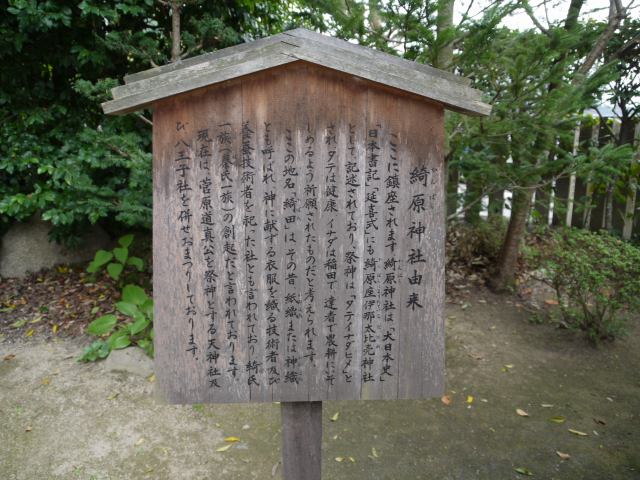 綺原神社由来
ここに鎮座されます綺原神社は、「大日本史」
「日本書記」「延喜式」にも綺原座伊那太比売神社
として、記述されており、祭神は「タテイナダヒメ」と
され、タテは健康、イナダは稲田で、達者で農耕にいそ
しめるよう祈願されたものだと考えられます。
ここの地名「綺田」は、その昔、紙織または神織
とも呼ばれ、神に献ずる衣服を織る技術者及び
養蚕技術者を祀った社とも言われており、綺氏
一族(秦氏一族)の創起だと言われております。
現在は、菅原道真公を祭神とする天神社及
び八王子社を併せおまつりしております。